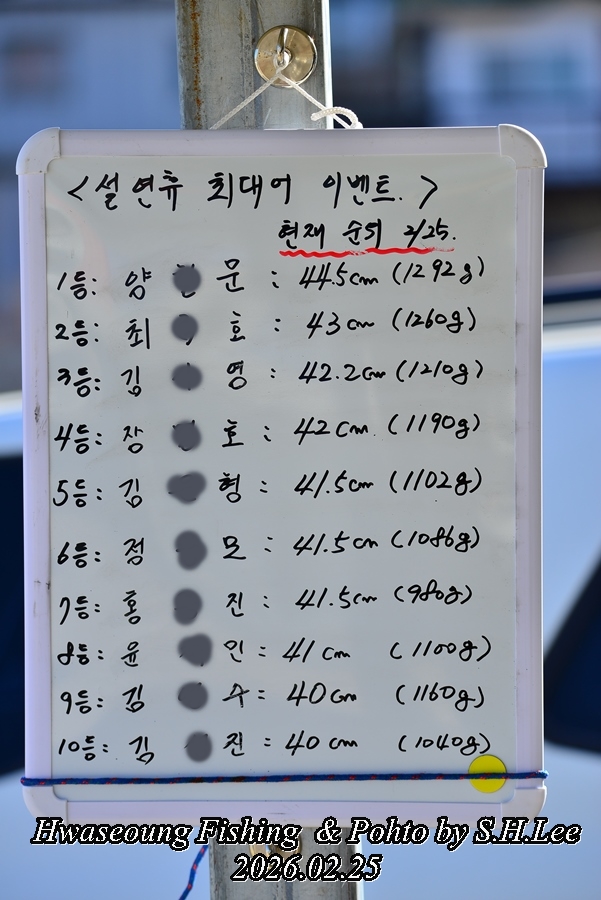 <설 연휴 최대어 이벤트.>
현재 순위 2/25.
1등: 양 문 : 44.5cm (1292g)
2등: 최 호 : 43cm (1260g)
3등: 김 영 : 42.2cm (1210g)
4등: 장 호 : 42cm. (1190g)
5등: 김 형 : 41.5cm (1102g)
6등: 정 모 : 41.5cm (1086g)
7등: 홍 진 : 41.5cm (980g)
8등: 윤 인 : 41cm (1100g)
9등: 김 수 : 40cm (1160g)
10등: 김 진 : 40cm (1040g)
Hwaseoung Fishing & Pohto by S.H.Lee
2026.02.25